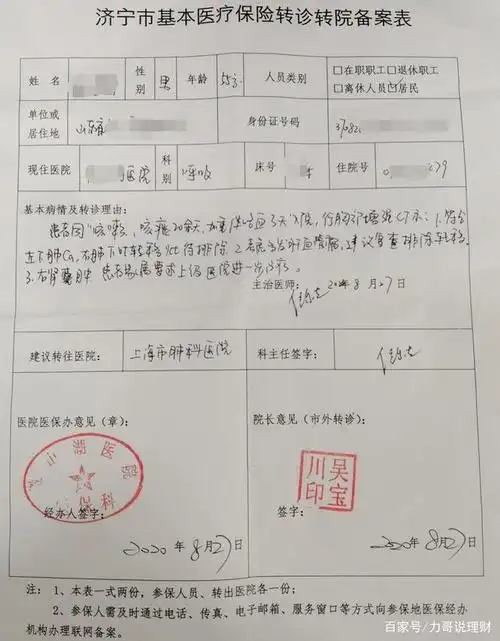 济宁市基本医疗保险转诊转院备案表
姓 名 性别 男 年龄 55岁 人员类别 □在职职工□退休职工
□离休人员□居民
单位或居住地 山东省 身份证号码 3708
现住医院 医院 科别 呼吸 床号 住院号 279
基本病情及转诊理由：
患者因“咳嗽、咳痰20余天，加重伴咯血3天”入院，行胸部增强CT示：1.符合
左下肺Ca，右肺下叶转移灶待排除 2. 建议复查排除转移
3.右肾囊肿 患者家属要求上级医院进一步治疗。
主治医师： 2020年8月27日
建议转往医院： 上海市肺科医院 科主任签字：
医院医保办意见（章）： 院长意见（市外转诊）：
湖医院
保科
吴宝川印
经办人签字： 签字：
2020年8月27日 2020年8月27日
注：1、本表一式两份，参保人员、转出医院各一份；
2、参保人需及时通过电话、传真、电子邮箱、服务窗口等方式向参保地医保经办
机构办理联网备案。
百家号/力哥说理财